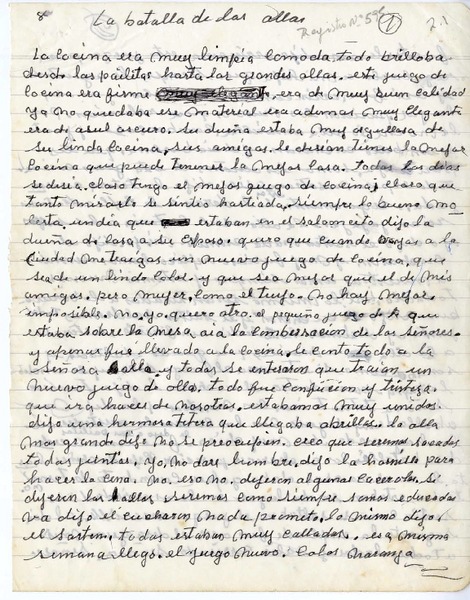 8 La batalla de las ollas
Registro Nº 595 1 21
La cocina era muy limpia comoda, todo brillaba
desde las pailitas hasta las grandes ollas. este juego de
cocina era firme, era de muy buen calidad
ya no quedaba ese material era ademas muy elegante
era de asul oscuro, su dueña estaba muy orgullosa de
su linda cocina, sus amigas le desian tienes la mejor
cocina que puede tenerce la mejor casa. todos los dias
se desia. claro tengo el mejor juego de cocina; claro que
tanto mirarlo se sintio hastiada, siempre lo bueno mo-
lesta. un dia que estaban en el saloncito dijo la
dueña de casa a su esposo. quiro que cuando vayas a la
ciudad me traigas un nuevo juego de cocina, que
sea de un lindo color. y que sea mejor que el de mis
amigas. pero mujer, como el tuyo. no hay mejor.
imposible. no, yo, quero otro. el pequeño juego de te que
estaba sobre la mesa oia la combersacion de los señores.
y apenas fue llevado a la cocina, le conto todo a la
señora olla y todas se enteraron que traian un
nuevo juego de olla, todo fue confucion y tristeza.
que ira hacer de nosotras, estabamos muy unidos.
dijo una hermosa tetera que llegaba abrillar. la olla
mas grande dijo no se preocupen. creo que seremos sacadas
todas juntas. Yo, no dare lumbre, dijo la hornilla para
hacer la cena. no, eso no. dijeron algunas cacerolas. si
dijeron las ollas seremos como siempre somos educadas
va dijo el cucharon nada prometo, lo mismo dijo.
el sarten. todas estaban muy calladas. esa misma
semana llego. el juego nuevo. color naranja